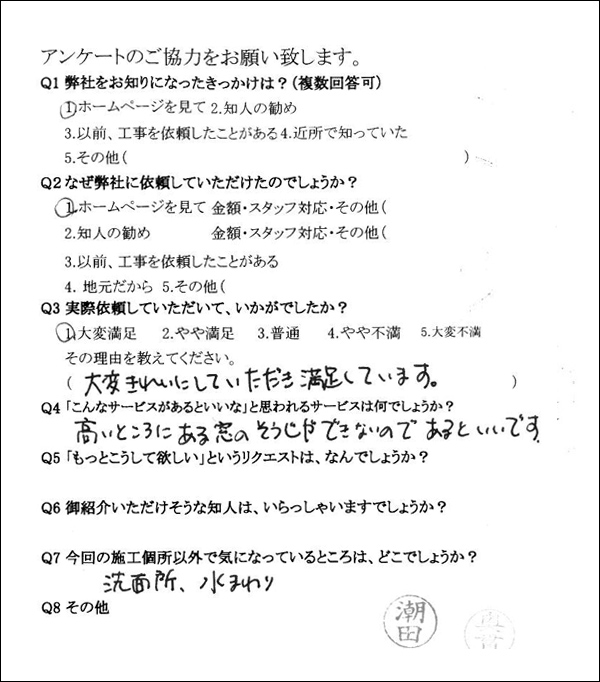 アンケートのご協力をお願い致します。
Q1 弊社をお知りになったきっかけは？（複数回答可）
1.ホームページを見て 2.知人の勧め
3.以前、工事を依頼したことがある 4.近所で知っていた
5.その他（ ）
Q2 なぜ弊社に依頼していただけたのでしょうか？
1.ホームページを見て 金額・スタッフ対応・その他（
2.知人の勧め 金額・スタッフ対応・その他（
3.以前、工事を依頼したことがある
4. 地元だから 5.その他（
Q3 実際依頼していただいて、いかがでしたか？
1.大変満足 2.やや満足 3.普通 4.やや不満 5.大変不満
その理由を教えてください。
（ 大変きれいにしていただき満足しています。 ）
Q4 「こんなサービスがあるといいな」と思われるサービスは何でしょうか？
高いところにある窓のそうじやできないのであるといいです
Q5 「もっとこうして欲しい」というリクエストは、なんでしょうか？
Q6 御紹介いただけそうな知人は、いらっしゃいますでしょうか？
Q7 今回の施工個所以外で気になっているところは、どこでしょうか？
洗面所、水まわり
Q8 その他
潮田